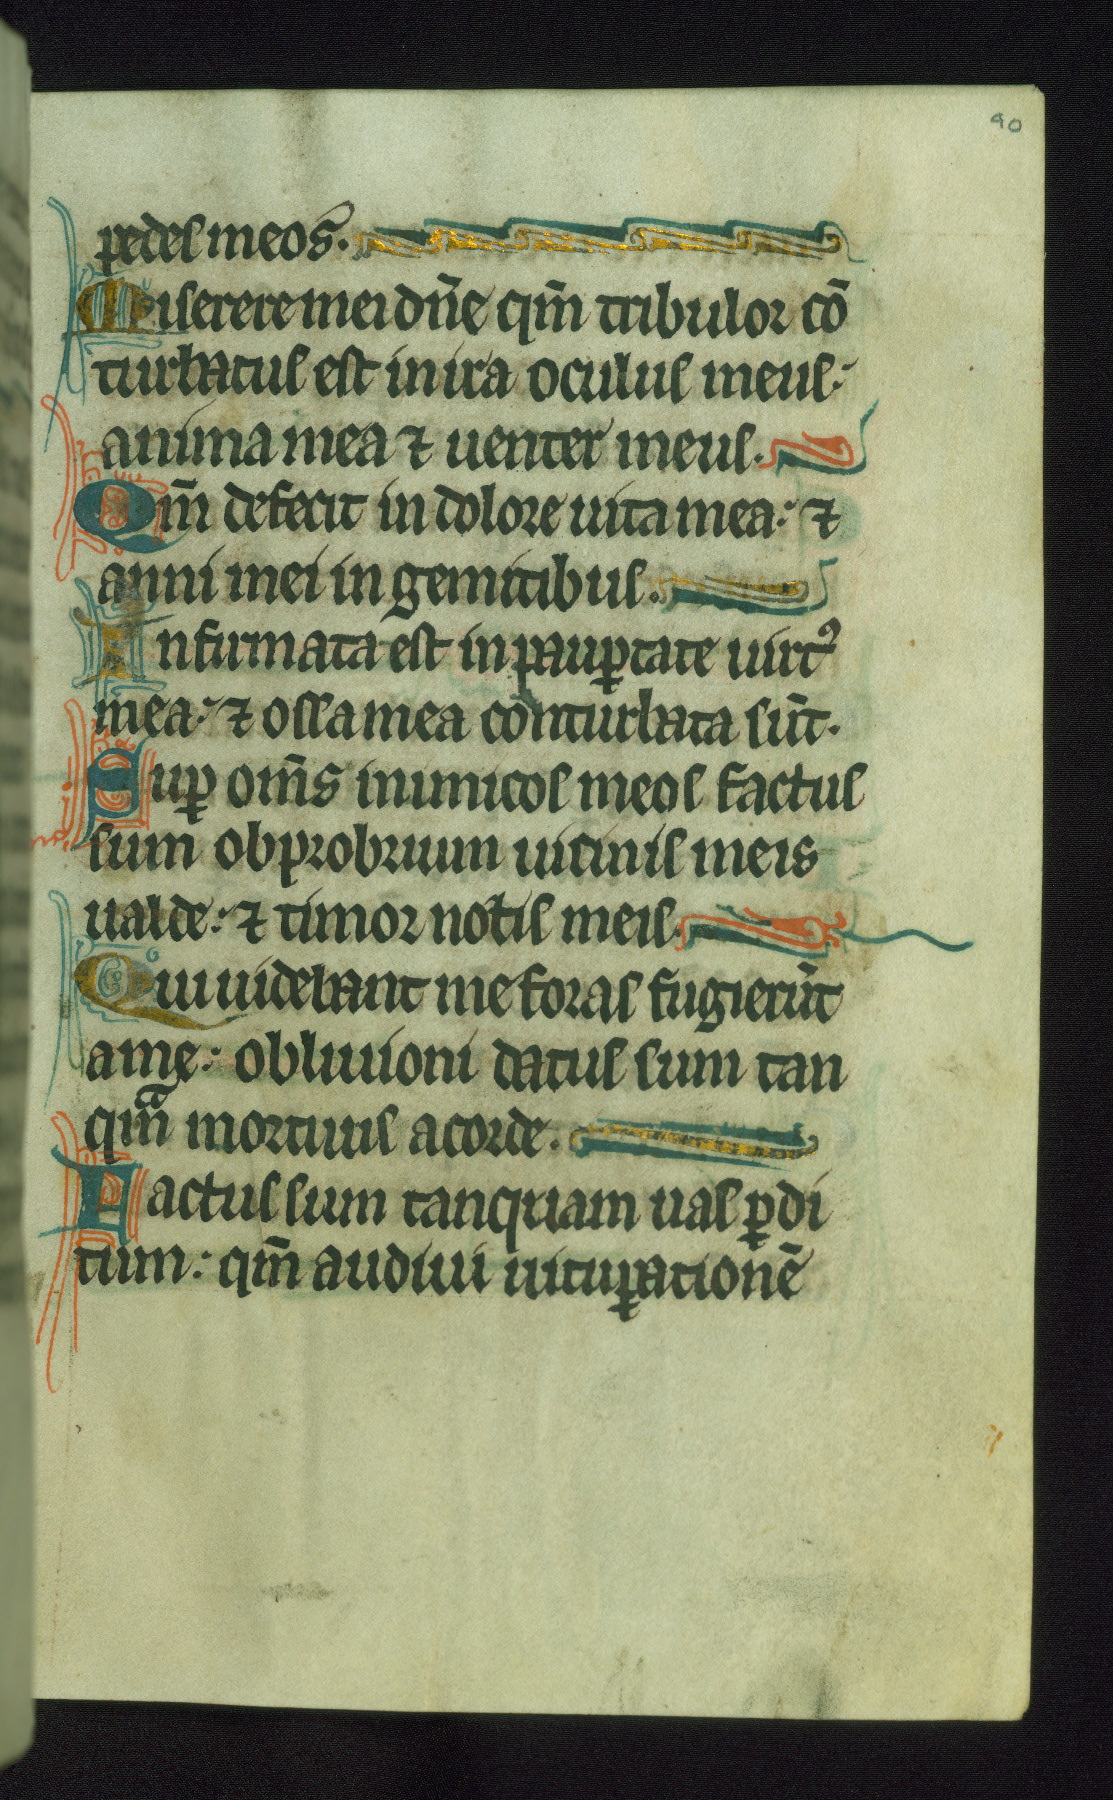 40
pedes meos.
Miserere mei dn̄e qm̄ tribulor cō
turbatus est in ira oculus meus:
anima mea ⁊ uenter meus.
Qm̄ defecit in dolore uita mea: ⁊
anni mei in gemitibus.
Infirmata est in paup̱tate uirtꝰ
mea: ⁊ ossa mea conturbata sūt.
Sup̱ om̄s inimicos meos factus
sum obprobrium uicinis meis
ualde: ⁊ timor notis meis.
Qui uidebant me foras fugierūt
a me: obliuioni datus sum tan
qm̄ᵃ mortuus a corde.
Factus sum tanquam uas p̱di
tum: qm̄ audiui uitup̱ationē